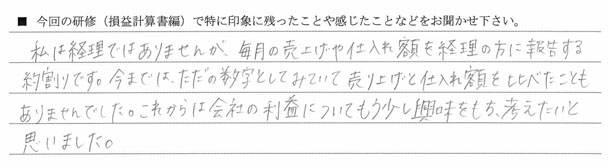 ■ 今回の研修（損益計算書編）で特に印象に残ったことや感じたことなどをお聞かせ下さい。
私は経理ではありませんが、毎月の売上げや仕入れ額を経理の方に報告する
約割りです。今までは、ただの数字としてみていて売り上げと仕入れ額を比べたことも
ありませんでした。これからは会社の利益についてもう少し興味をもち、考えたいと
思いました。